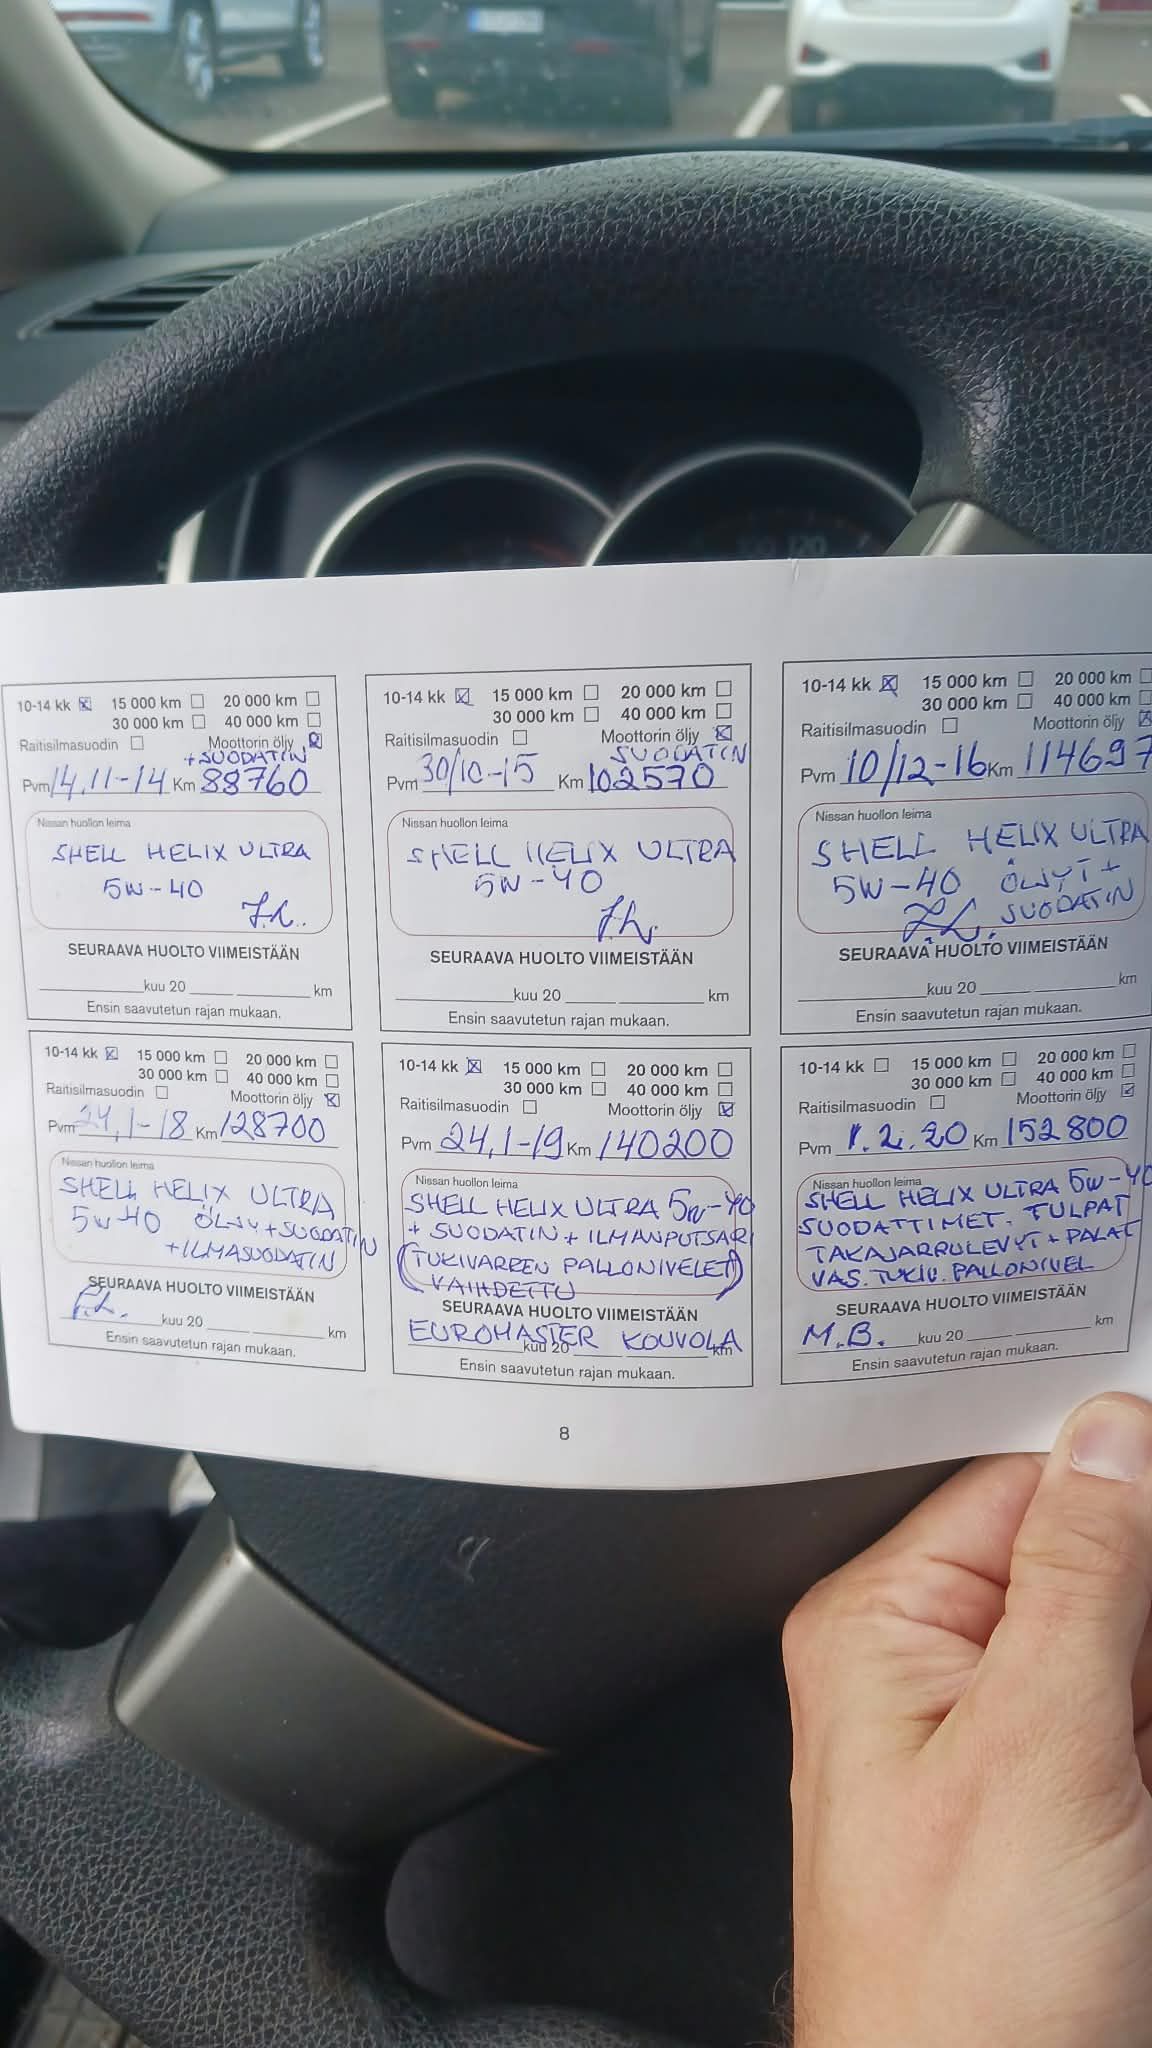 10-14 kk ☒ 15 000 km ☐ 20 000 km ☐
30 000 km ☐ 40 000 km ☐
Raitisilmasuodin ☐ Moottorin öljy ☒
+SUODATIN
Pvm 14.11-14 Km 88760
Nissan huollon leima
SHELL HELIX ULTRA
5W-40
SEURAAVA HUOLTO VIIMEISTÄÄN
kuu 20 km
Ensin saavutetun rajan mukaan.
10-14 kk ☒ 15 000 km ☐ 20 000 km ☐
30 000 km ☐ 40 000 km ☐
Raitisilmasuodin ☐ Moottorin öljy ☒
SUODATIN
Pvm 30/10-15 Km 102570
Nissan huollon leima
SHELL HELIX ULTRA
5W-40
SEURAAVA HUOLTO VIIMEISTÄÄN
kuu 20 km
Ensin saavutetun rajan mukaan.
10-14 kk ☒ 15 000 km ☐ 20 000 km ☐
30 000 km ☐ 40 000 km ☐
Raitisilmasuodin ☐ Moottorin öljy ☒
Pvm 10/12-16 Km 114697
Nissan huollon leima
SHELL HELIX ULTRA
5W-40 ÖLJYT +
SUODATIN
SEURAAVA HUOLTO VIIMEISTÄÄN
kuu 20 km
Ensin saavutetun rajan mukaan.
10-14 kk ☒ 15 000 km ☐ 20 000 km ☐
30 000 km ☐ 40 000 km ☐
Raitisilmasuodin ☐ Moottorin öljy ☒
Pvm 24.1-18 Km 128700
Nissan huollon leima
SHELL HELIX ULTRA
5W-40 ÖLJY+SUODATIN
+ILMASUODATIN
SEURAAVA HUOLTO VIIMEISTÄÄN
kuu 20 km
Ensin saavutetun rajan mukaan.
10-14 kk ☒ 15 000 km ☐ 20 000 km ☐
30 000 km ☐ 40 000 km ☐
Raitisilmasuodin ☐ Moottorin öljy ☒
Pvm 24.1-19 Km 140200
Nissan huollon leima
SHELL HELIX ULTRA 5W-40
+ SUODATIN + ILMANPUTSARI
(TUKIVARREN PALLONIVELET)
VAIHDETTU
SEURAAVA HUOLTO VIIMEISTÄÄN
EUROMASTER KOUVOLA
kuu 20 km
Ensin saavutetun rajan mukaan.
10-14 kk ☐ 15 000 km ☐ 20 000 km ☐
30 000 km ☐ 40 000 km ☐
Raitisilmasuodin ☐ Moottorin öljy ☒
Pvm 1.2.20 Km 152800
Nissan huollon leima
SHELL HELIX ULTRA 5W-40
SUODATTIMET. TULPAT
TAKAJARRULEVYT + PALAT
VAS. TUKIV. PALLONIVEL
SEURAAVA HUOLTO VIIMEISTÄÄN
M.B. kuu 20 km
Ensin saavutetun rajan mukaan.
8